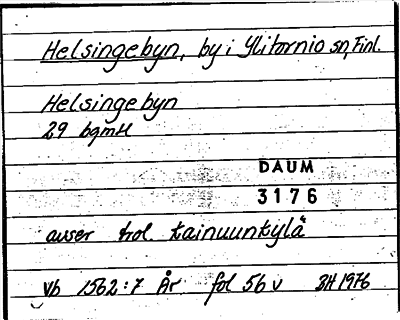 Helsingebyn, by i Ylitornio sn, Finl.
Helsingebyn
29 bgmH
DAUM
3176
avser trol. Kainuunkylä
Vb 1562:7 År fol 56 v BH 1976